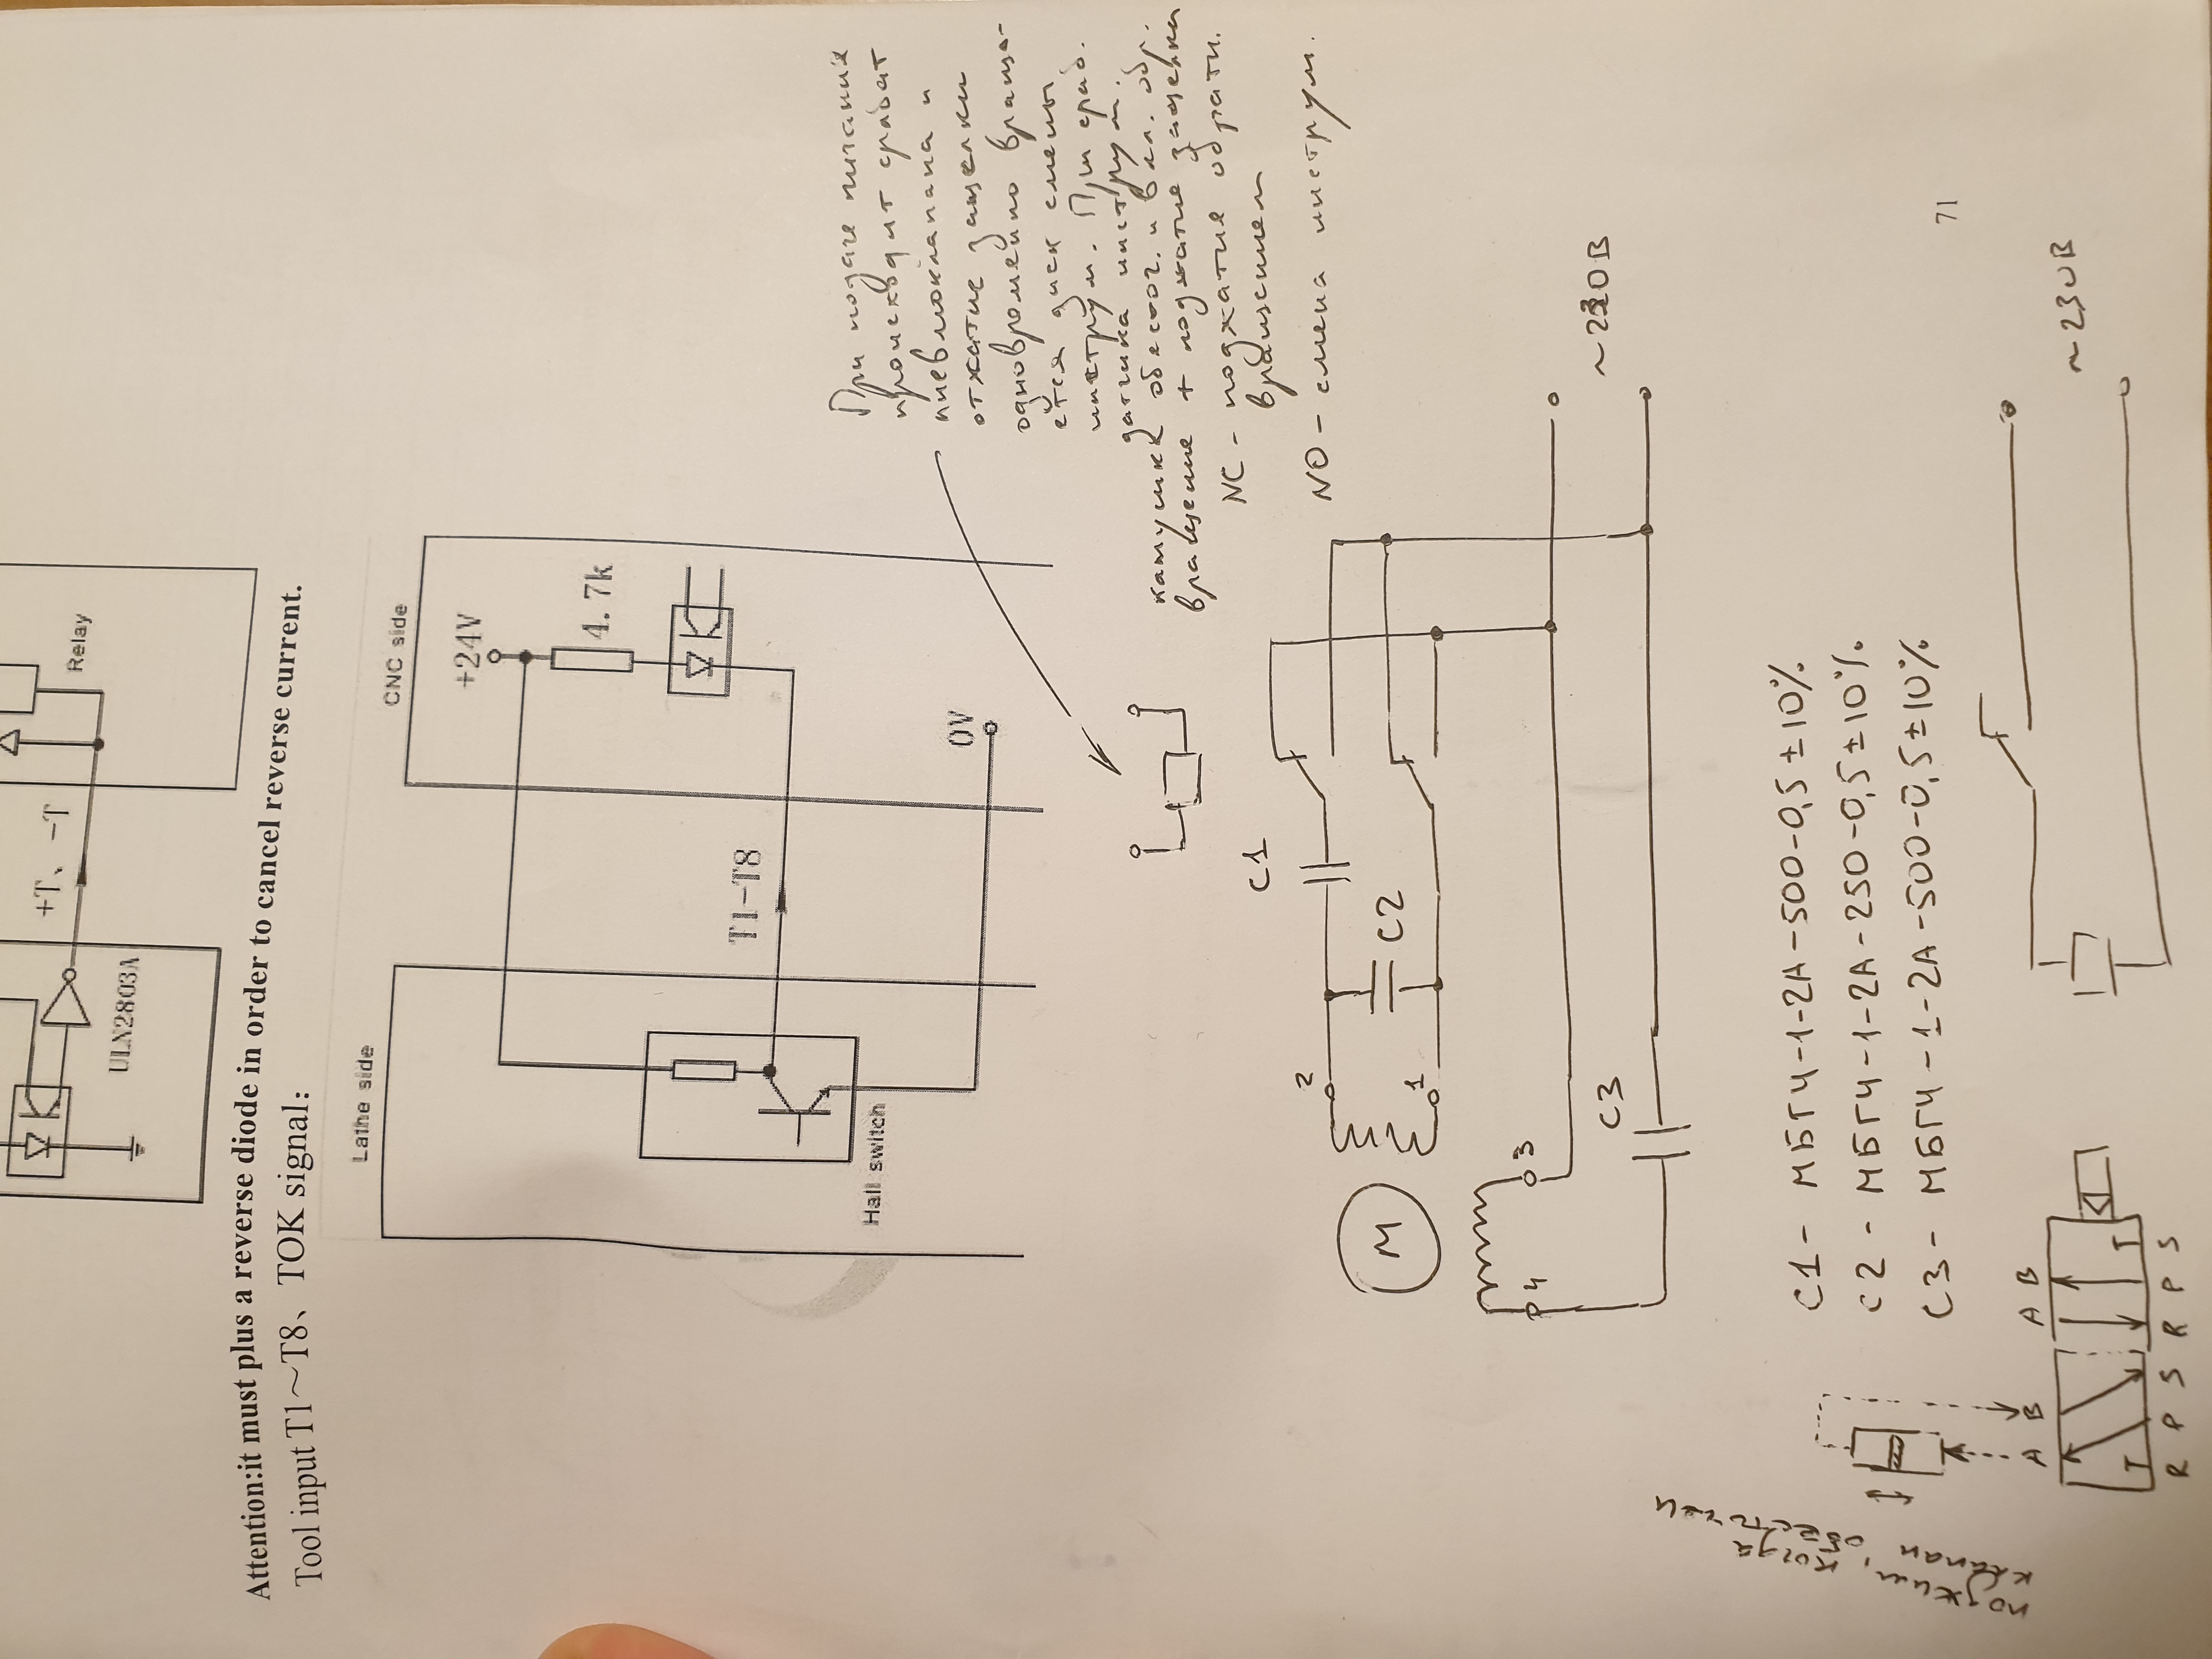 Relay
+T、-T
ULN2803A
Attention:it must plus a reverse diode in order to cancel reverse current.
Tool input T1～T8、TOK signal:
Lathe side
CNC side
+24V
4.7k
T1-T8
0V
Hall switch
При подаче питания
происходит срабат
пневмоклапана и
отжатие защелки
одновременно враща-
ется диск смены
инструм. При сраб.
датчика инструм.
катушка обесточ. и вкл. обр.
вращение + поджатие защелки
NC - поджатие обратн.
вращением
NO - смена инструм.
C1
C2
2
1
M
3
4
C3
~230В
C1 - МБГЧ-1-2А-500-0,5±10%
C2 - МБГЧ-1-2А-250-0,5±10%
C3 - МБГЧ-1-2А-500-0,5±10%
71
~230В
поджим, когда
клапан обесточен
A B
A B
R P S R P S